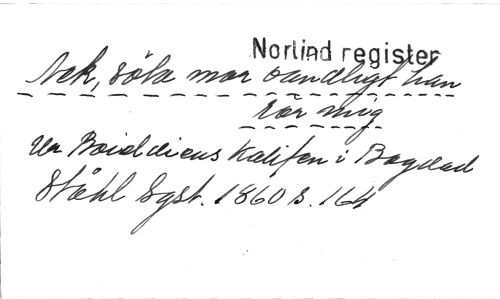 Norlind register
Nek, söta mor oändligt han
rör mig
Ur Boieldieus Kalifen i Bagdad
Ståhl Sgst. 1860 s. 164